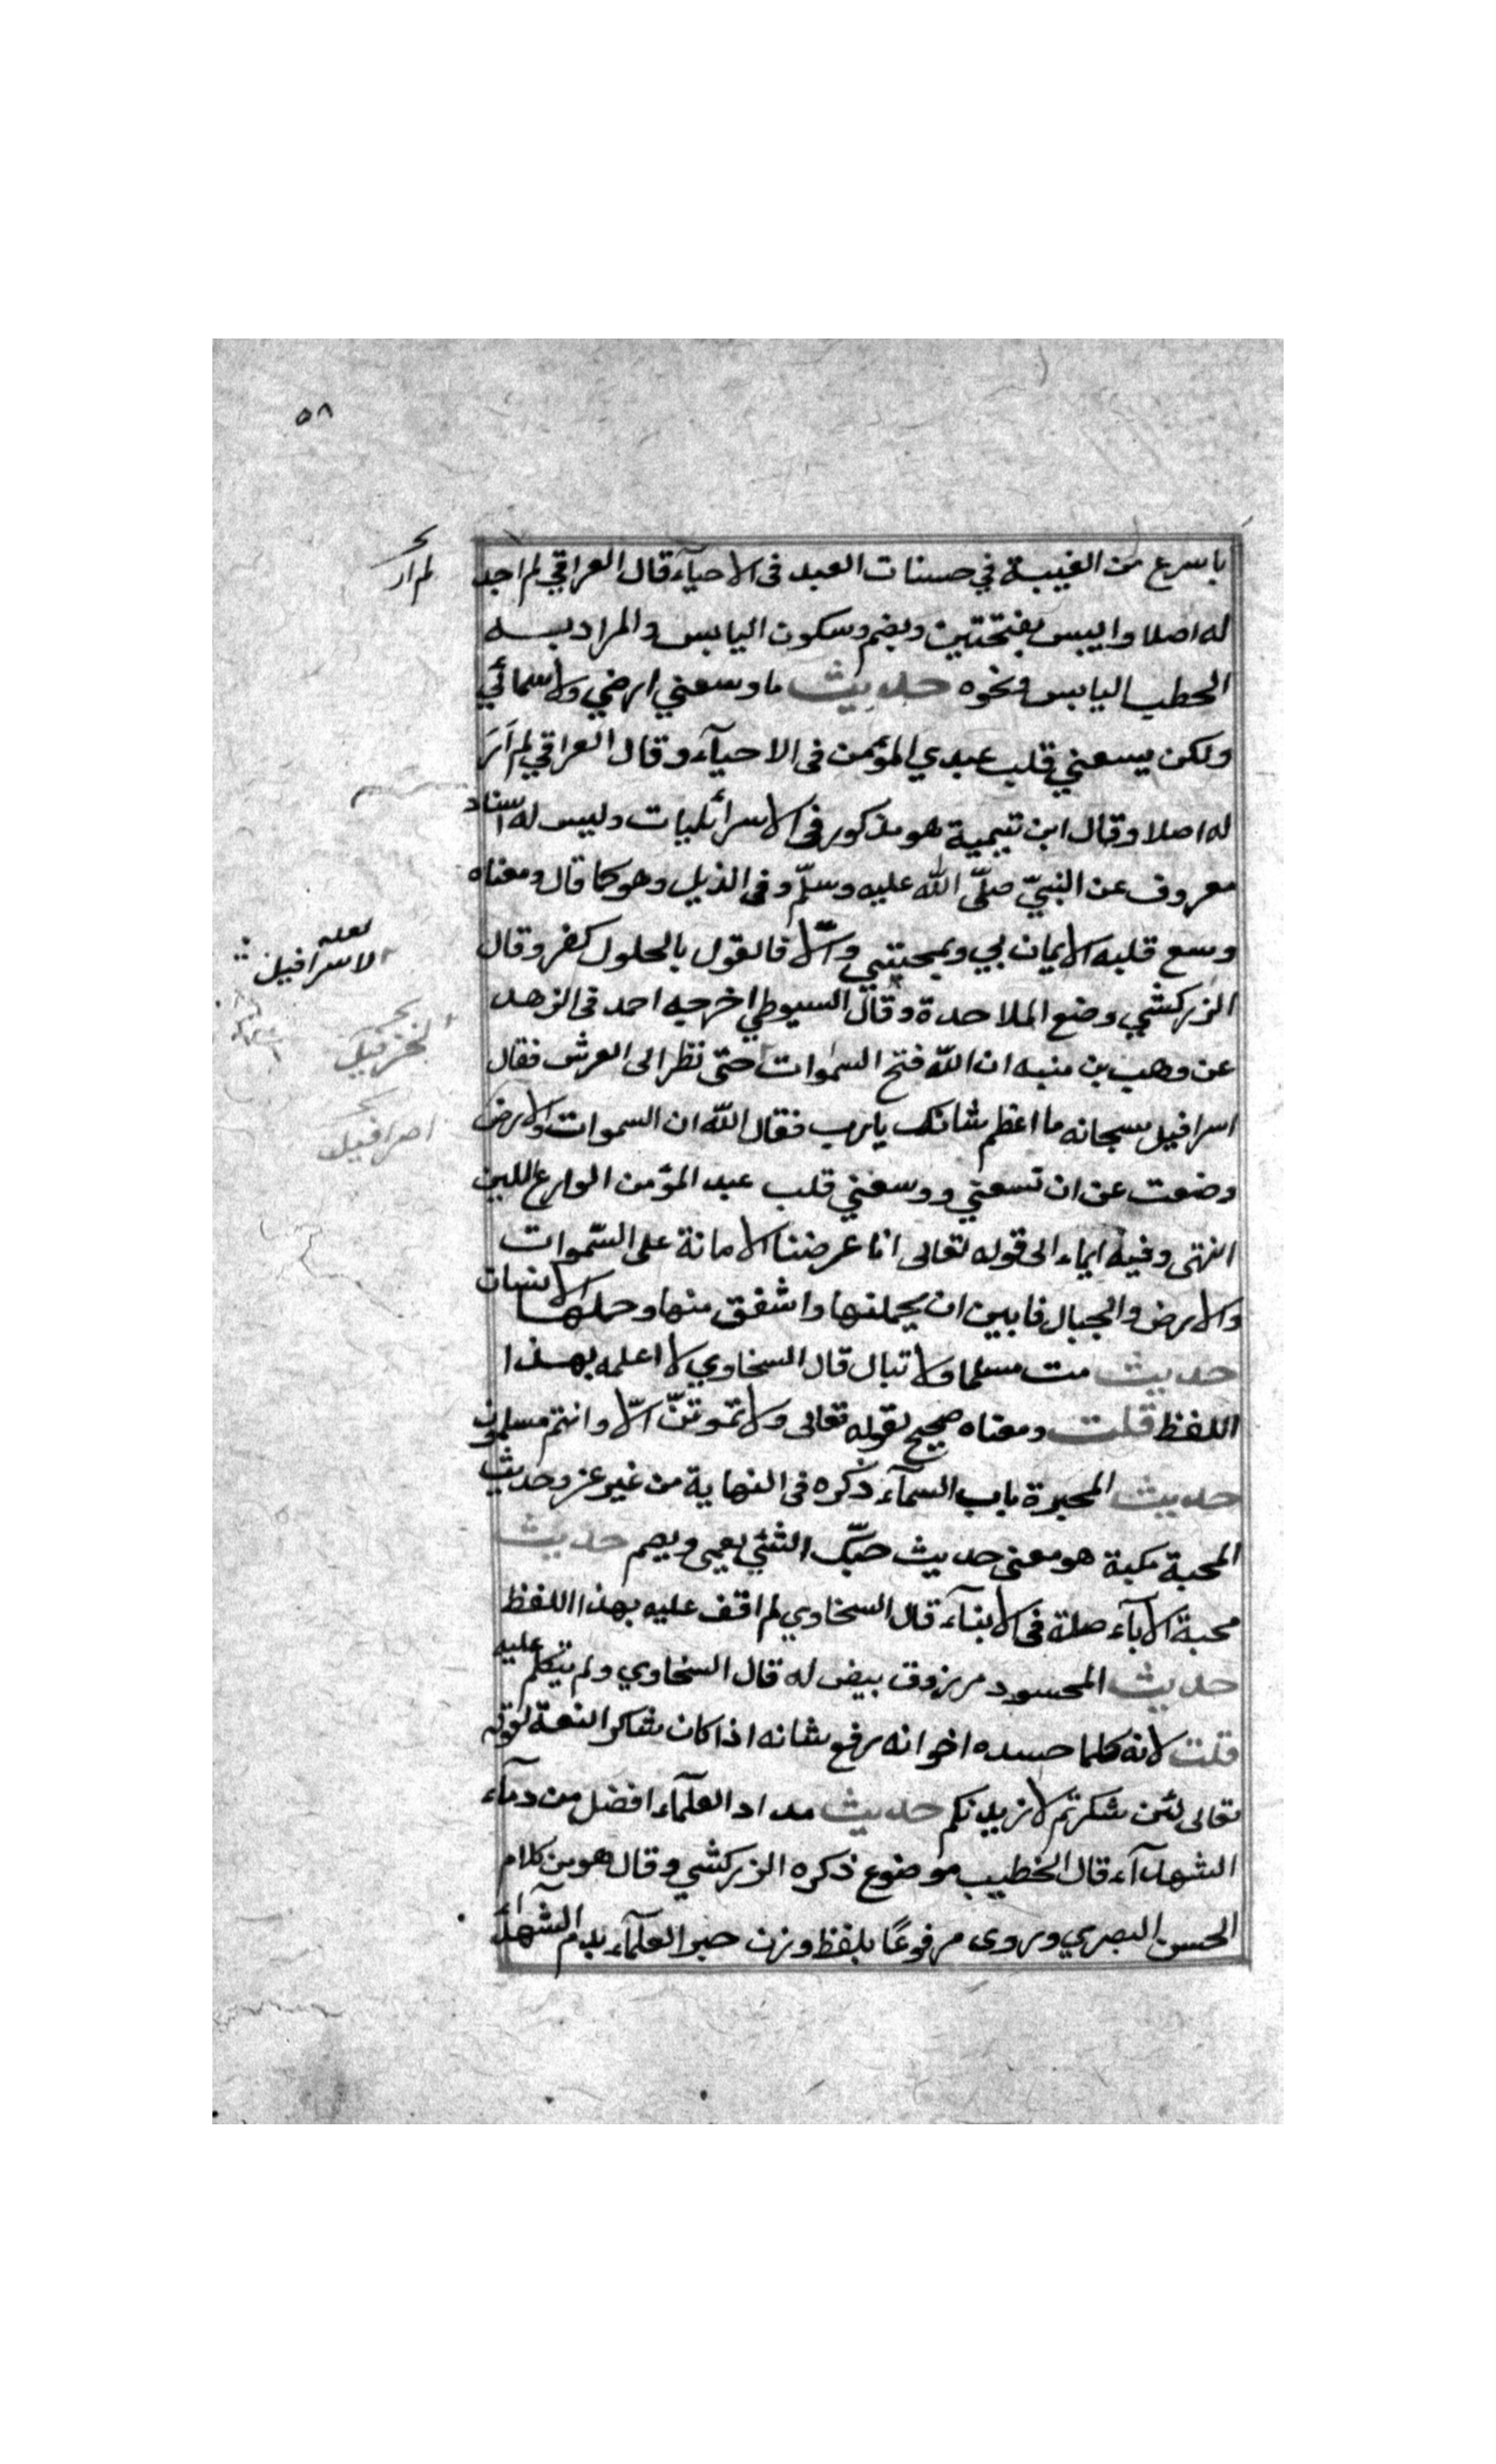 ٥٨
باسرع من الغيبة في حسنات العبد فى الاحياء قال العراقي لم اجد
لم ار
له اصلا واليبس بفتحتين وبضم وسكون اليابس والمراد به
الحطب اليابس ونحوه حديث ما وسعني ارضي ولا سمائي
ولكن يسعني قلب عبدي المؤمن فى الاحيآء وقال العراقي لم اَرَ
له اصلا وقال ابن تيمية هو مذكور فى الاسرائليات وليس له اسناد
معروف عن النبيّ صلّى الله عليه وسلّم وفى الذيل وهو كما قال ومعناه
وسع قلبه الايمان بي وبمحبتي والّا فالقول بالحلول كفر وقال
لعله
الاسرافيل
الزركشي وضع الملاحدة وقال السيوطي اخرجه احمد فى الزهد
عن وهب بن منبه ان الله فتح السموات حتّى نظر الى العرش فقال
اسرافيل سبحانه ما اعظم شانك يا رب فقال الله ان السموات والارض
اصرافيل
وضعت عن ان تسعني ووسعني قلب عبد المؤمن الوارع اللين
انتهى وفيه ايماء الى قوله تعالى انا عرضنا الامانة على السّموات
والارض والجبال فابين ان يحملنها واشفق منها وحملها الانسان
حديث مت مسلما ولا تبال قال السخاوي لا اعلمه بهذا
اللفظ قلت ومعناه صحيح لقوله تعالى ولا تموتنّ الّا وانتم مسلمون
حديث المجرة باب السمآء ذكره فى النهاية من غير عزو حديث
المحبة مكبة هو معنى حديث حبّك الشئي يعمى ويصم حديث
محبة الاباء صلة فى الابنآء قال السخاوي لم اقف عليه بهذا اللفظ
حديث المحسود مرزوق بيض له قال السخاوي ولم يتكلم عليه
قلت لانه كلما حسده اخوانه يرفع شانه اذا كان شاكر النعمة لقوله
تعالى لئن شكرتم لازيدنكم حديث مداد العلمآء افضل من دمآء
الشهدآء قال الخطيب موضوع ذكره الزركشي وقال هو من كلام
الحسن البصري وروى مرفوعًا بلفظ وزن حبر العلمآء بدم الشهدآء